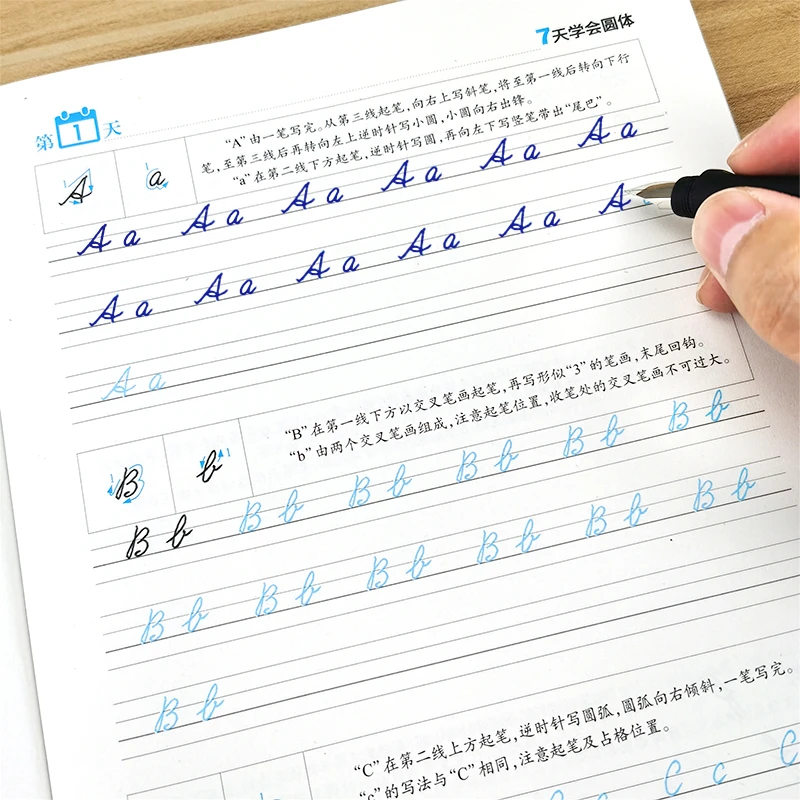 7天学会圆体
第1天
“A”由一笔写完。从第三线起笔，向右上写斜笔，将至第一线后转向下行
笔，至第三线后再转向左上逆时针写小圆，小圆向右出锋。
“a”在第二线下方起笔，逆时针写圆，再向左下写竖笔带出“尾巴”。
A a
A a A a A a A a A a A a
A a A a A a A a A a A
A a
“B”在第一线下方以交叉笔画起笔，再写形似“3”的笔画，末尾回钩。
“b”由两个交叉笔画组成，注意起笔位置，收笔处的交叉笔画不可过大。
1 B b 1
B b B b B b B b B b B b
B b B b B b B b B b B b
B b
“C”在第二线上方起笔，逆时针写圆弧，圆弧向右倾斜，一笔写完。
“c”的写法与“C”相同，注意起笔及占格位置。
C c C